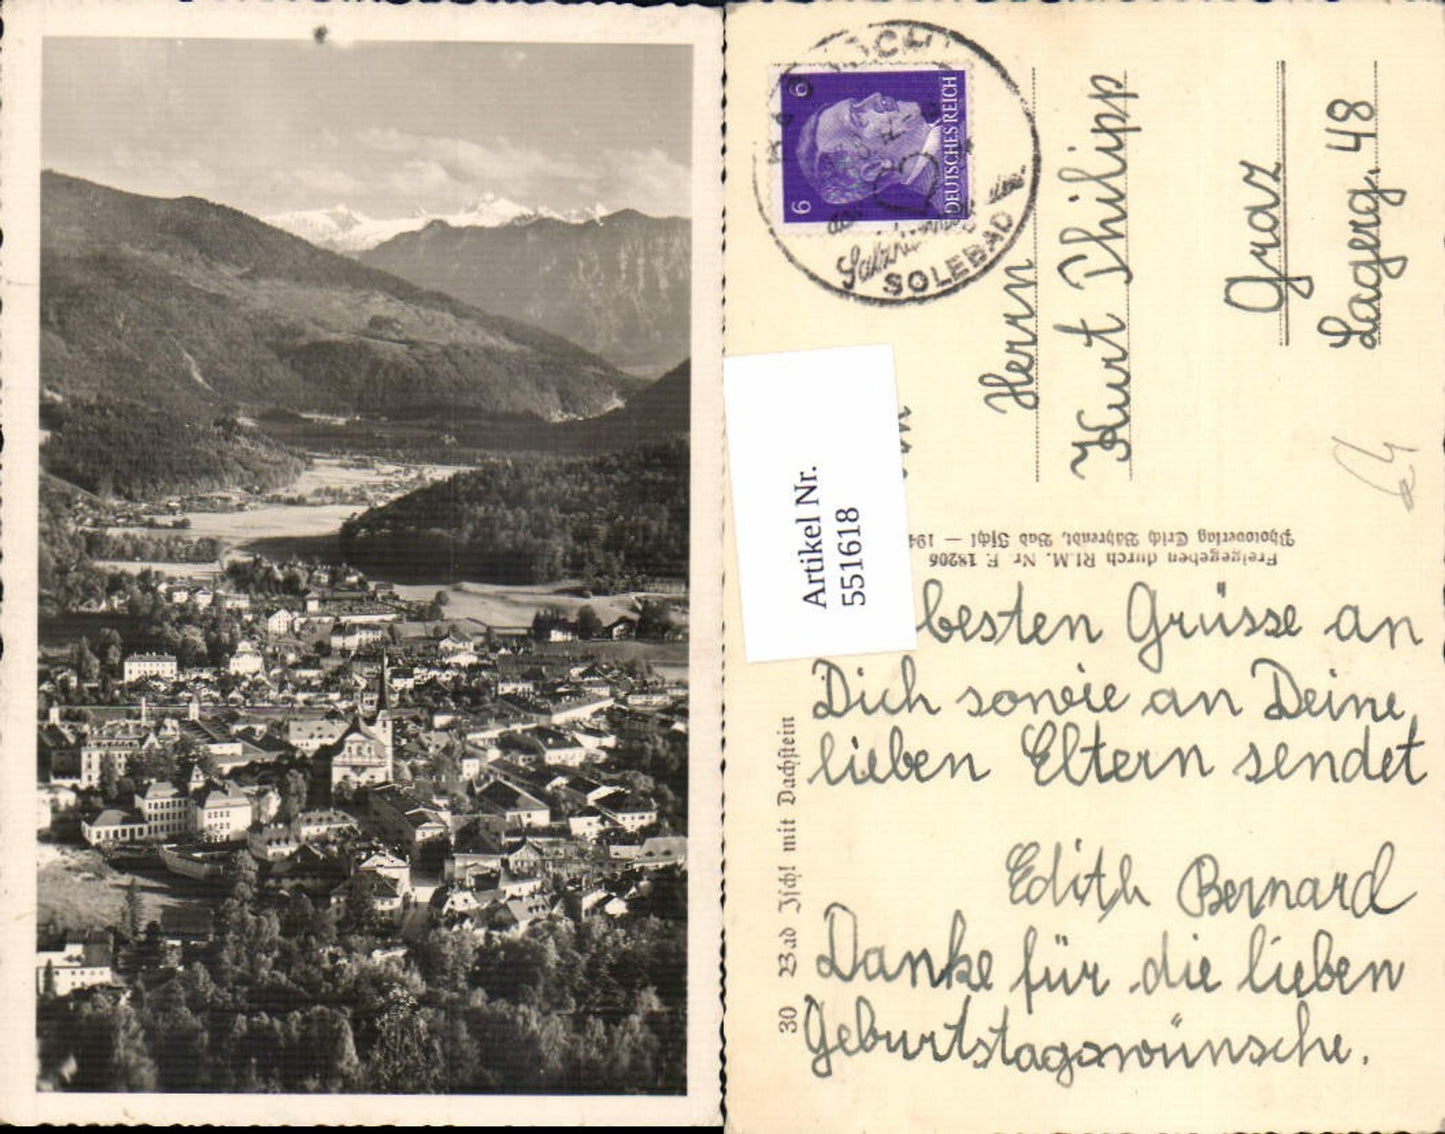 6 6
DEUTSCHES REICH
SOLEBAD
Herrn
Kurt Philipp
Graz
Lagerg. 48
Artikel Nr.
551618
Freigegeben durch RLM. Nr. F. 18206
Photoverlag Erich Bährendt, Bad Ischl — 194
30 Bad Ischl mit Dachstein
besten Grüsse an
Dich sowie an Deine
lieben Eltern sendet
Edith Bernard
Danke für die lieben
Geburtstagswünsche.